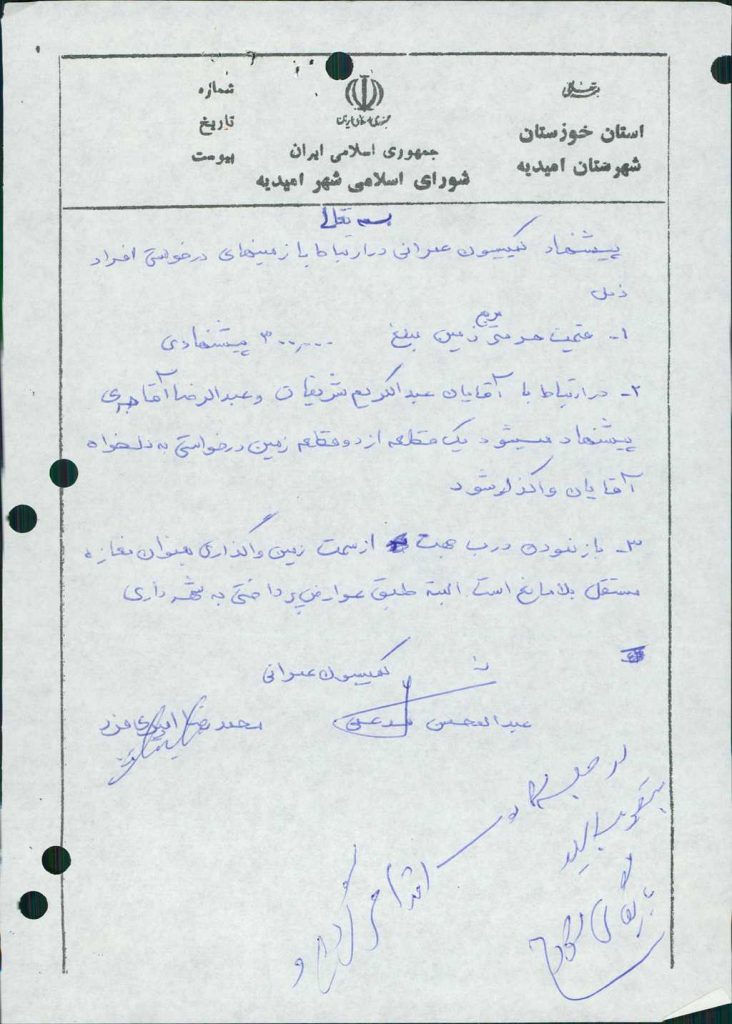 بسمه تعالی
استان خوزستان
شهرستان امیدیه
جمهوری اسلامی ایران
شورای اسلامی شهر امیدیه
شماره
تاریخ
پیوست
بسمه تعالی
پیشنهاد کمیسیون عمرانی در ارتباط با زمینهای درخواستی افراد
ذیل
۱- قیمت هر متر مربع زمین مبلغ ۳۰۰,۰۰۰ پیشنهادی
۲- در ارتباط با آقایان عبدالکریم شریفیان و عبدالرضا آقاجری
پیشنهاد میشود یک قطعه از دو قطعه زمین درخواستی به دلخواه
آقایان واگذار شود
۳- باز نمودن درب جهت از سمت زمین واگذاری بعنوان مغازه
مستقل بلامانع است البته طبق عوارض پرداختی به شهرداری
کمیسیون عمرانی
عبدالحسن
محمد رضا
در جلسه
اقدام